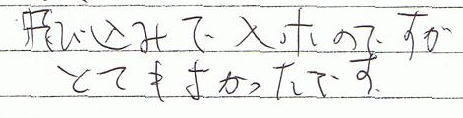 飛び込みで入ホのですが
とてもよかったです。